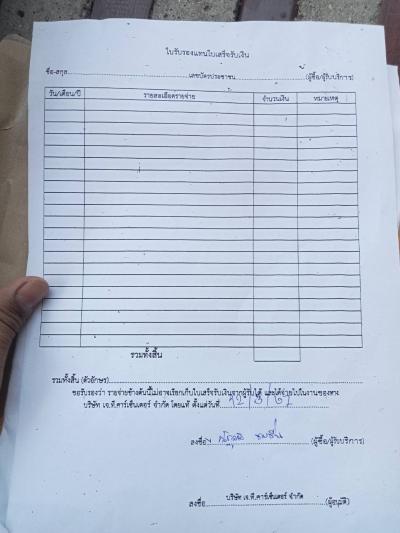 ใบรับรองแทนใบเสร็จรับเงิน
ชื่อ-สกุล.....................................................เลขบัตรประชาชน..............................(ผู้ซื้อ/ผู้รับบริการ)
วัน/เดือน/ปี รายละเอียดรายจ่าย จำนวนเงิน หมายเหตุ
รวมทั้งสิ้น
รวมทั้งสิ้น (ตัวอักษร)
ขอรับรองว่า รายจ่ายข้างต้นนี้ไม่อาจเรียกเก็บใบเสร็จรับเงินจากผู้รับได้ และได้จ่ายไปในงานของทาง
บริษัท เจ.ที.คาร์เซ็นเตอร์ จำกัด โดยแท้ ตั้งแต่วันที่
ลงชื่อ (ผู้ซื้อ/ผู้รับบริการ)
บริษัท เจ.ที.คาร์เซ็นเตอร์ จำกัด
ลงชื่อ (ผู้อนุมัติ)